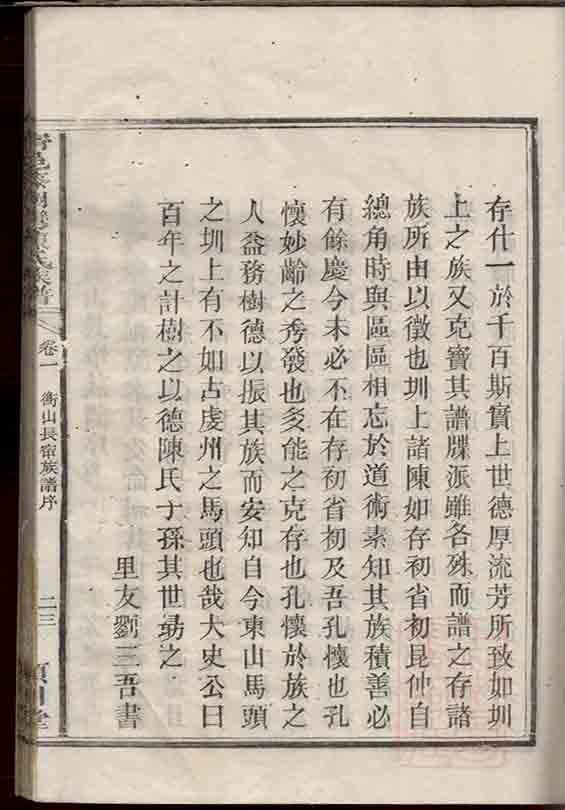 存什一於千百斯實上世德厚流芳所致如圳
上之族又克寶其譜牒派雖各殊而譜之存諸
族所由以徵也圳上諸陳如存初省初昆仲自
總角時與區區相忘於道術素知其族積善必
有餘慶今未必不在存初省初及吾孔懷也孔
懷妙齡之秀發也炙能之克存也孔懷於族之
人益務樹德以振其族而安知自今東山馬頭
之圳上有不如古虔州之馬頭也哉太史公曰
百年之計樹之以德陳氏子孫其世勗之
里友劉三吾書
族譜
卷一
衡山長甯族譜序
二三
堂